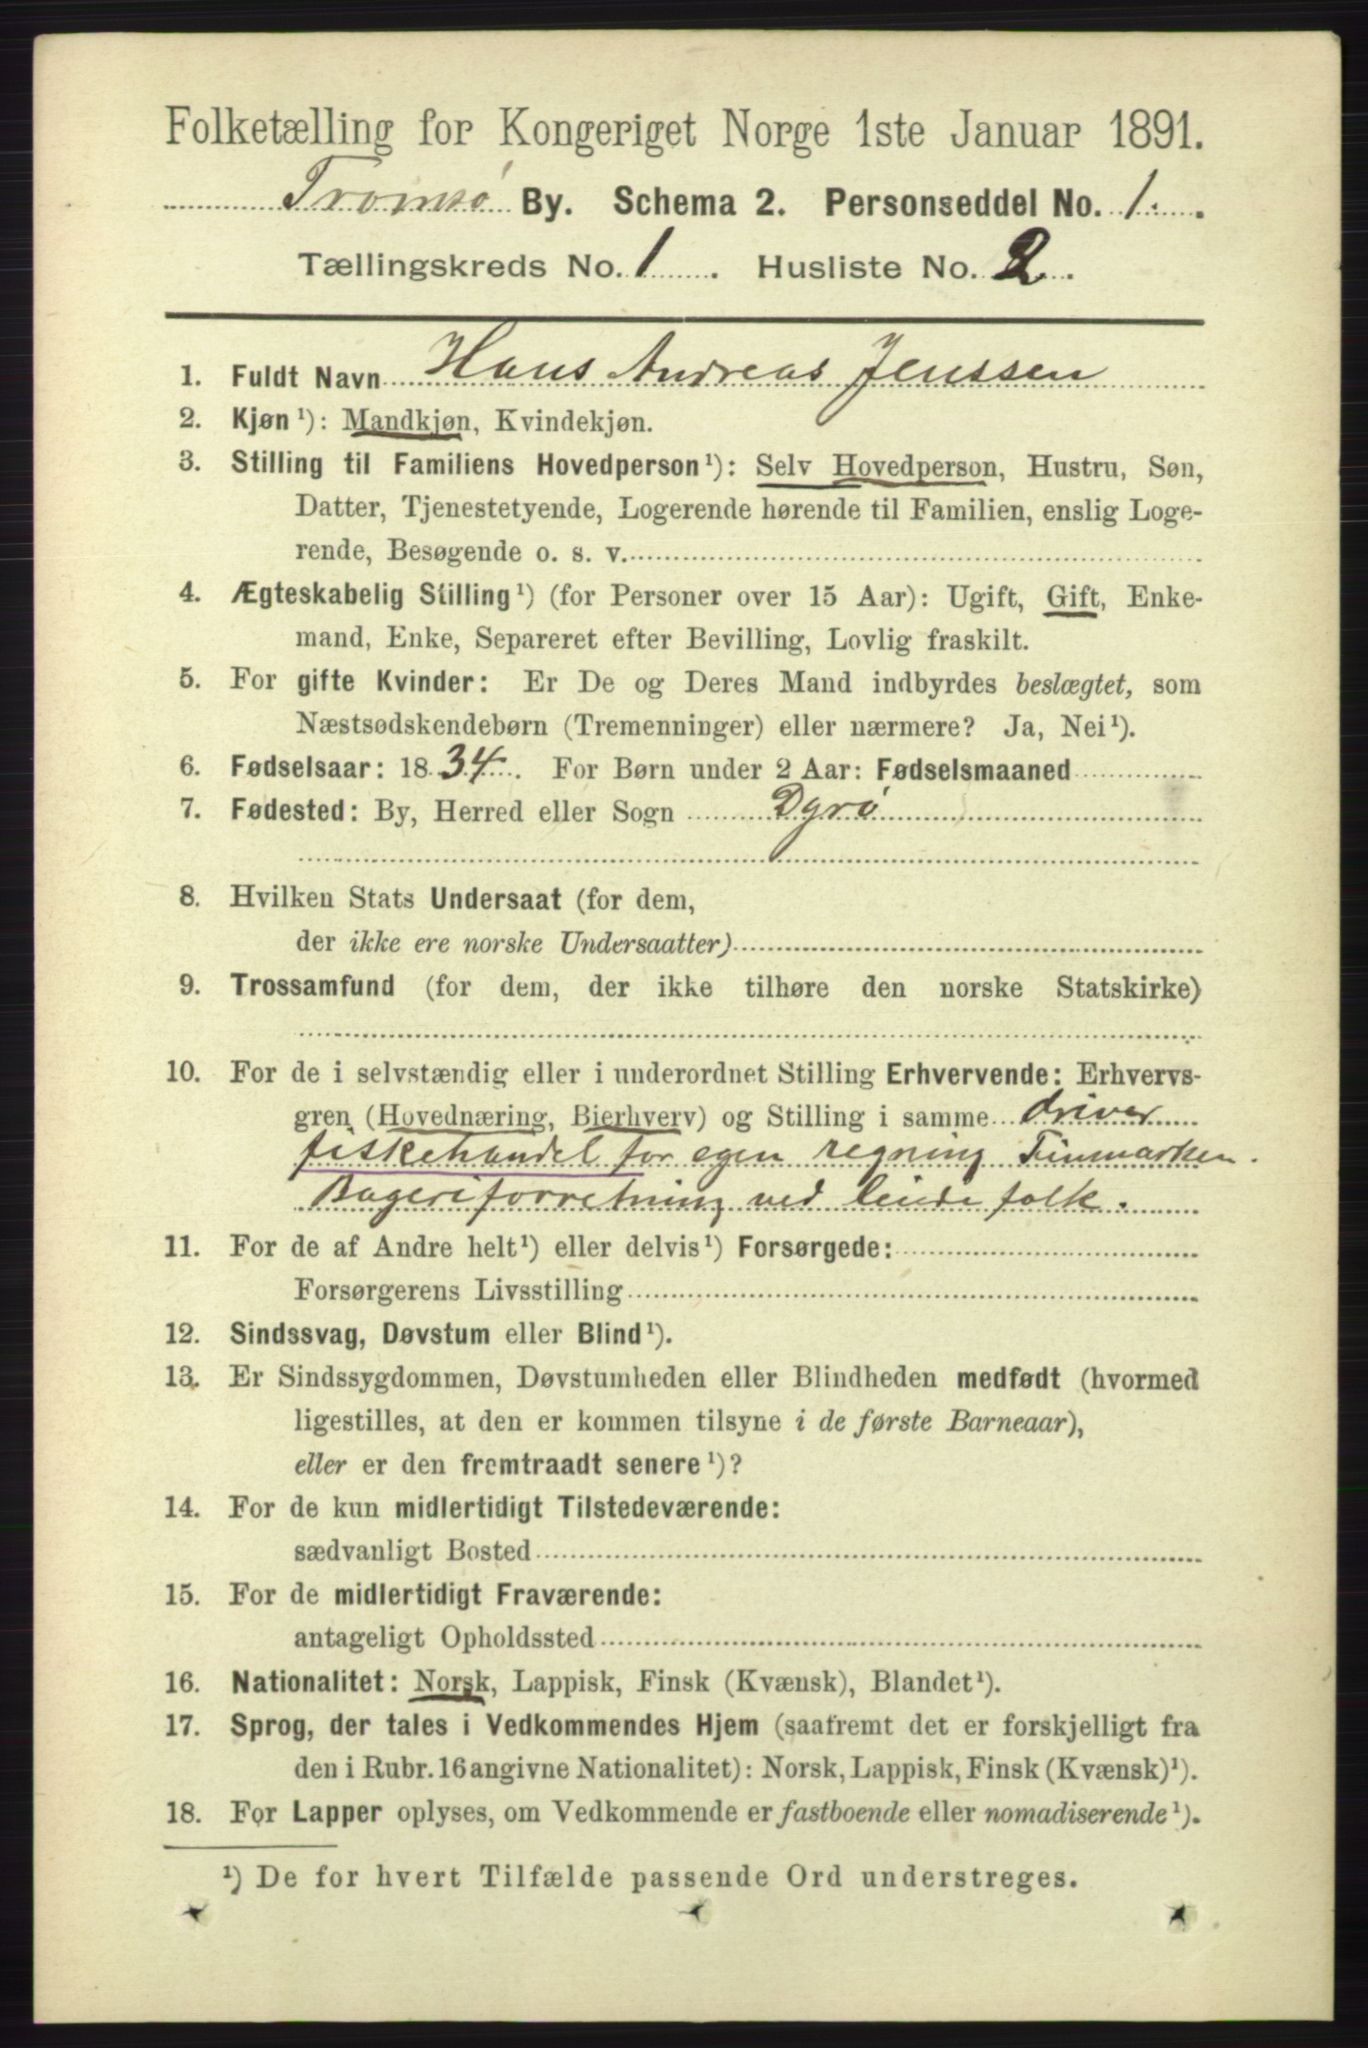 Folketælling for Kongeriget Norge 1ste Januar 1891.
Tromsø By. Schema 2. Personseddel No. 1.
Tællingskreds No. 1. Husliste No. 2.
1. Fuldt Navn Hans Andreas Jenssen
2. Kjøn¹): Mandkjøn, Kvindekjøn.
3. Stilling til Familiens Hovedperson¹): Selv Hovedperson, Hustru, Søn,
Datter, Tjenestetyende, Logerende hørende til Familien, enslig Loge-
rende, Besøgende o. s. v.
4. Ægteskabelig Stilling¹) (for Personer over 15 Aar): Ugift, Gift, Enke-
mand, Enke, Separeret efter Bevilling, Lovlig fraskilt.
5. For gifte Kvinder: Er De og Deres Mand indbyrdes beslægtet, som
Næstsødskendebørn (Tremenninger) eller nærmere? Ja, Nei¹).
6. Fødselsaar: 1834. For Børn under 2 Aar: Fødselsmaaned
7. Fødested: By, Herred eller Sogn Dyrø
8. Hvilken Stats Undersaat (for dem,
der ikke ere norske Undersaatter)
9. Trossamfund (for dem, der ikke tilhøre den norske Statskirke)
10. For de i selvstændig eller i underordnet Stilling Erhvervende: Erhvervs-
gren (Hovednæring, Bierhverv) og Stilling i samme driver
fiskehandel for egen regning Finmarken.
Bageriforretning ved leiede folk.
11. For de af Andre helt¹) eller delvis¹) Forsørgede:
Forsørgerens Livsstilling
12. Sindssvag, Døvstum eller Blind¹).
13. Er Sindssygdommen, Døvstumheden eller Blindheden medfødt (hvormed
ligestilles, at den er kommen tilsyne i de første Barneaar),
eller er den fremtraadt senere¹)?
14. For de kun midlertidigt Tilstedeværende:
sædvanligt Bosted
15. For de midlertidigt Fraværende:
antageligt Opholdssted
16. Nationalitet: Norsk, Lappisk, Finsk (Kvænsk), Blandet¹).
17. Sprog, der tales i Vedkommendes Hjem (saafremt det er forskjelligt fra
den i Rubr. 16 angivne Nationalitet): Norsk, Lappisk, Finsk (Kvænsk)¹).
18. For Lapper oplyses, om Vedkommende er fastboende eller nomadiserende¹).
¹) De for hvert Tilfælde passende Ord understreges.